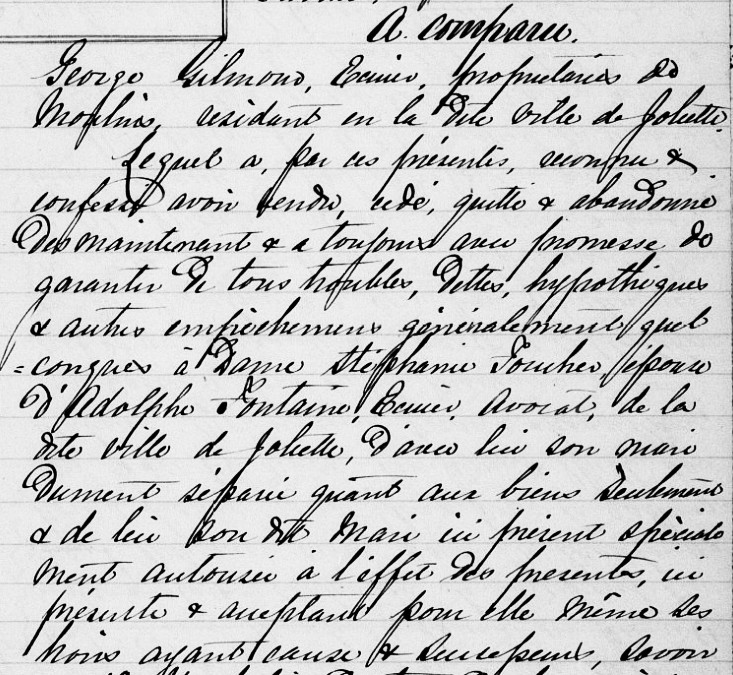 A comparu.
George Gilmour, Ecuier, propriétaires de
Moulins, résidant en la dite ville de Joliette.
Lequel a, par ces présentes, reconnu &
confessé avoir vendu, cédé, quitté & abandonné
dès maintenant & à toujours avec promesse de
garantir de tous troubles, dettes, hypothèques
& autres empêchemens généralement quel
=conques à Dame Stéphanie Foucher, épouse
d'Adolphe Fontaine, Ecuier, Avocat, de la
dite ville de Joliette, d'avec lui son mari
dument séparée quant aux biens seulement
& de lui son dit mari ici présent spéciale
ment autorisée à l'effet des présentes, ici
présente & acceptant pour elle même ses
hoirs ayant cause & successeurs, savoir